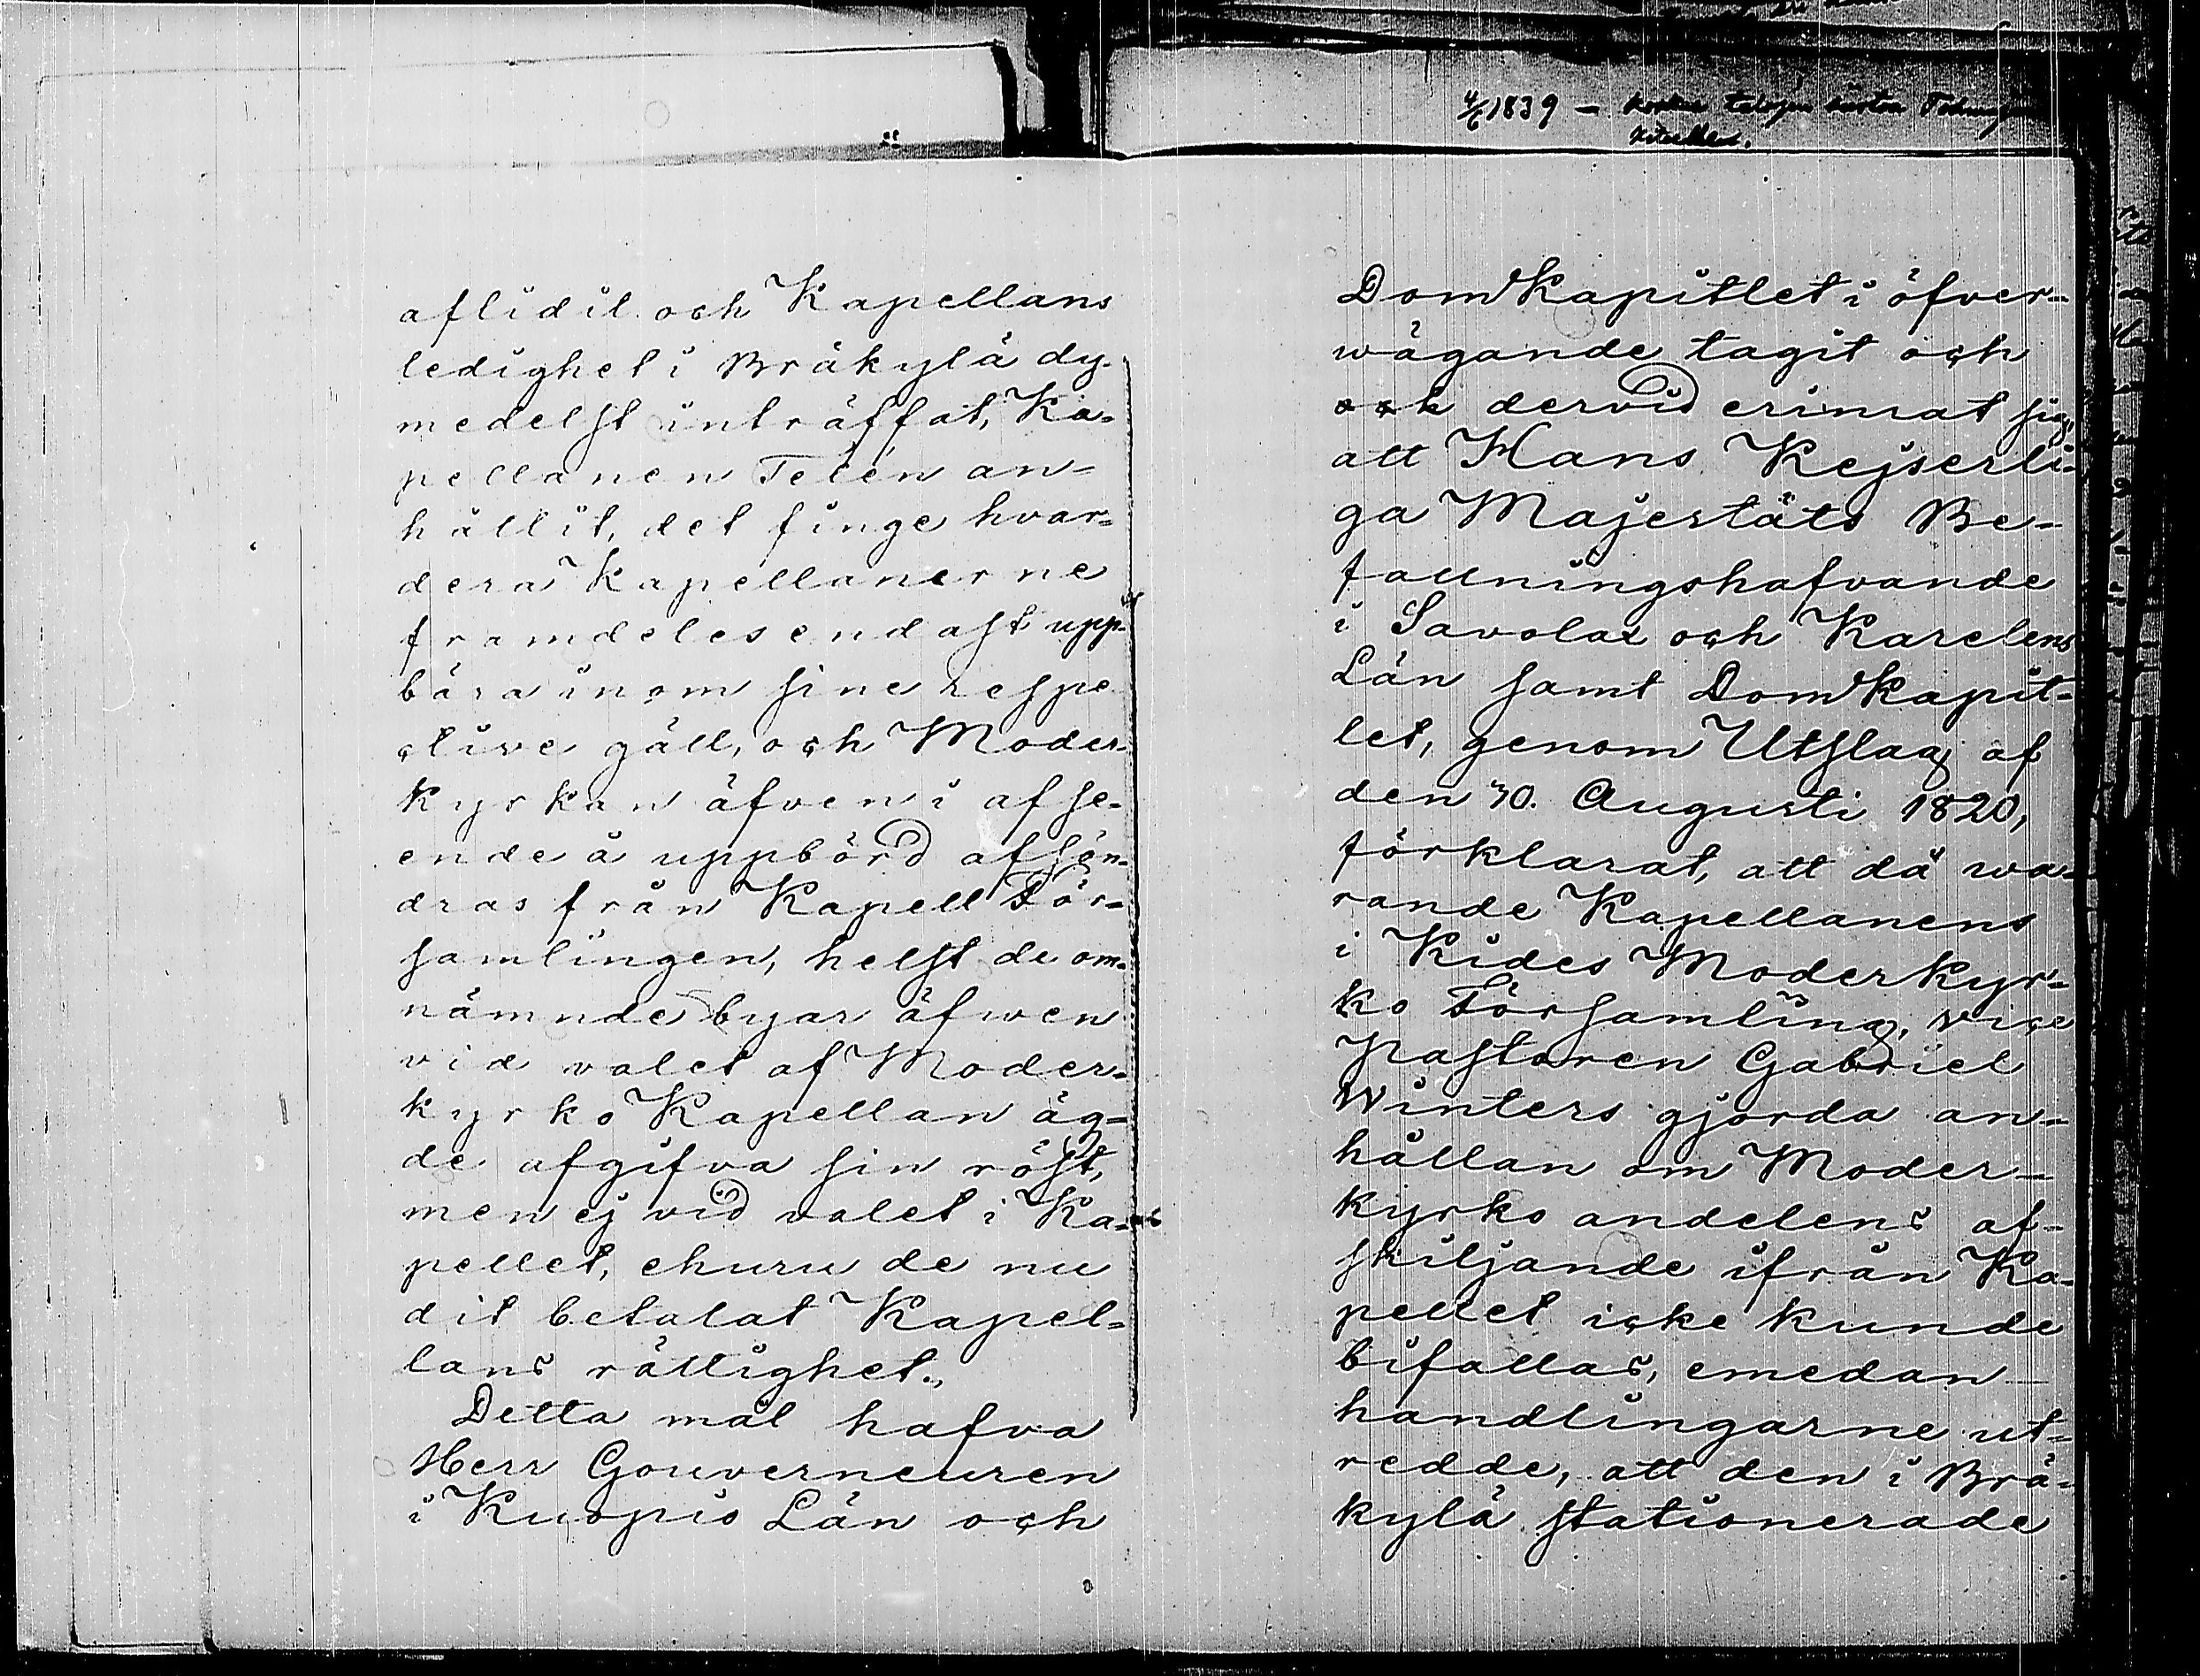 4/6 1839 –
aflidit och Kapellans
ledighet i Bräkylä dy-
medelst inträffat, Ka-
pellanen Telén an-
hållit, det finge hvar-
dera Kapellanerne
framdeles endast upp-
bära inom sine respe
ctive gäll, och Moder-
kyrkan äfven i afse-
ende å uppbörd afsön-
dras från Kapell För-
samlingen, helst de om-
nämnde byar äfwen
vid valet af Moder-
kyrko Kapellan äg-
de afgifva sin röst,
men ej vid valet i Ka-
pellet, ehuru de nu
dit betalat Kapel-
lans rättighet.,
Detta mål hafva
Herr Gouverneuren
i Kuopio Län och
Domkapitlet i öfver-
wägande tagit och
och dervid erinrat sig,
att Hans Kejserli-
ga Majestäts Be-
fallningshafvande
i Savolax och Karelens
Län samt Domkapit-
let, genom Utslag af
den 30. Augusti 1820,
förklarat, att då wa-
rande Kapellanens
i Kides Moderkyr-
ko Församling, vice
Pastoren Gabriel
Winters gjorda an-
hållan om Moder-
kyrko andelens af-
skiljande ifrån Ka-
pellet icke kunde
bifallas, emedan
handlingarne ut-
redde, att den i Brä-
kylä stationerade